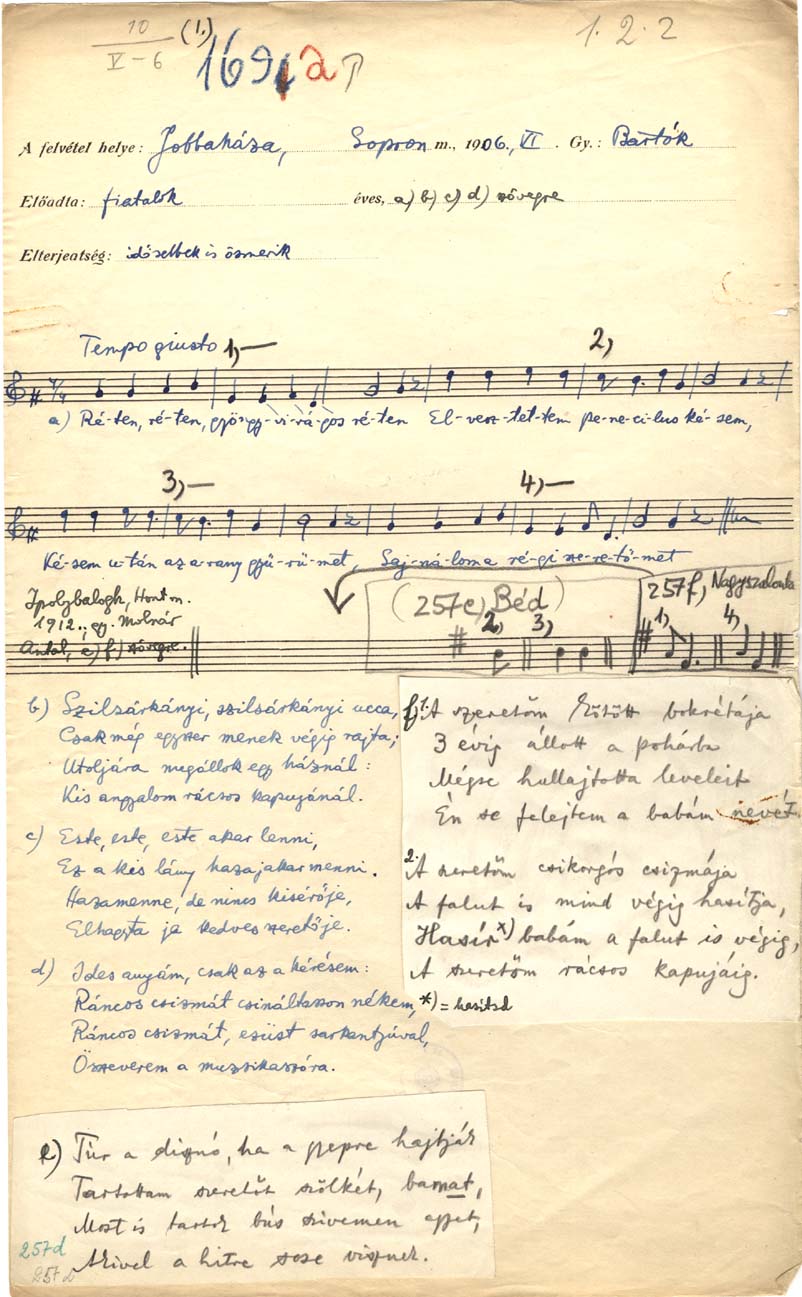 10
V-6
(1.)
1691 a
1. 2. 2
A felvétel helye: Jobbaháza, Sopron m., 1906., VI. Gy.: Bartók
Előadta: fiatalok éves, a) b) c) d) szövegre
Elterjeatség: idősebbek is ösmerik
Tempo giusto 1,— 2,
a) Ré-ten, ré-ten, gyöngy-vi-rá-gos ré-ten El-vesz-tet-tem pe-ne-ci-lus ké-sem,
3,— 4,—
Ké-sem u-tán az a-rany gyű-rű-met, Saj-ná-lom a ré-gi sze-re-tő-met
Ipolybalogh, Hont m.
1912., gy. Molnár
Antal, e) f) szövegre.
(257e) Béd)
2, 3,
257f, Nagyszalonta
1, 4,
b) Szilsárkányi, szilsárkányi ucca,
Csak még egyszer menek végig rajta;
Utoljára megállok egy háznál:
Kis angyalom rácsos kapujánál.
c) Este, este, este akar lenni,
Ez a kis lány hazajakar menni.
Hazamenne, de nincs kisérője,
Elhagyta ja kedves szeretője.
d) Ides anyám, csak az a kérésem:
Ráncos csizmát csináltasson nékem,
Ráncos csizmát, ezüst sarkantyúval,
Összeverem a muzsikaszóra.
f) 1. A szeretőm kötött bokrétája
3 évig állott a pohárba
Mégse hullajtotta leveleit
Én se felejtem a babám nevét.
2. A szeretőm csikorgós csizmája
A falut is mind végig hasítja,
Hasír x) babám a falut is végig,
A szeretőm rácsos kapujáig.
*) = hasítsd
e) Túr a disznó, ha a gyepre hajtják
Tartottam szeretőt szőlkét, barnat,
Most is tartok bús szivemen egyet,
Akivel a hitre sose visznek.
257d
257d